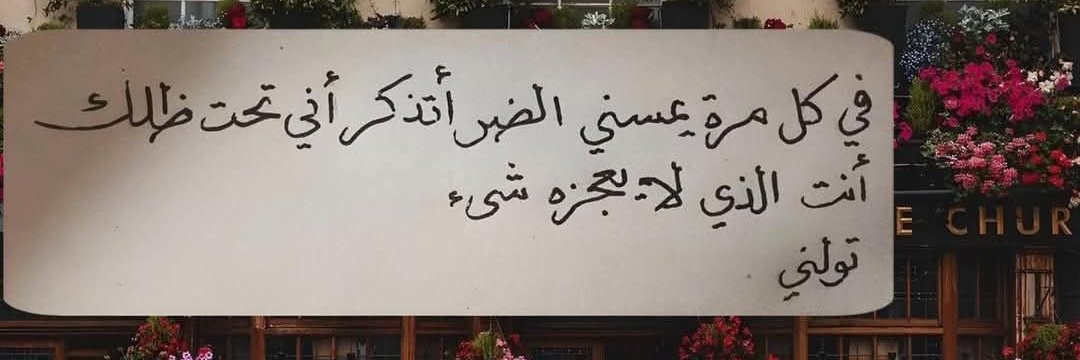 في كل مرة يمسني الضر أتذكر أني تحت ظلك
أنت الذي لا يعجزه شيء
تولني
E CHUR